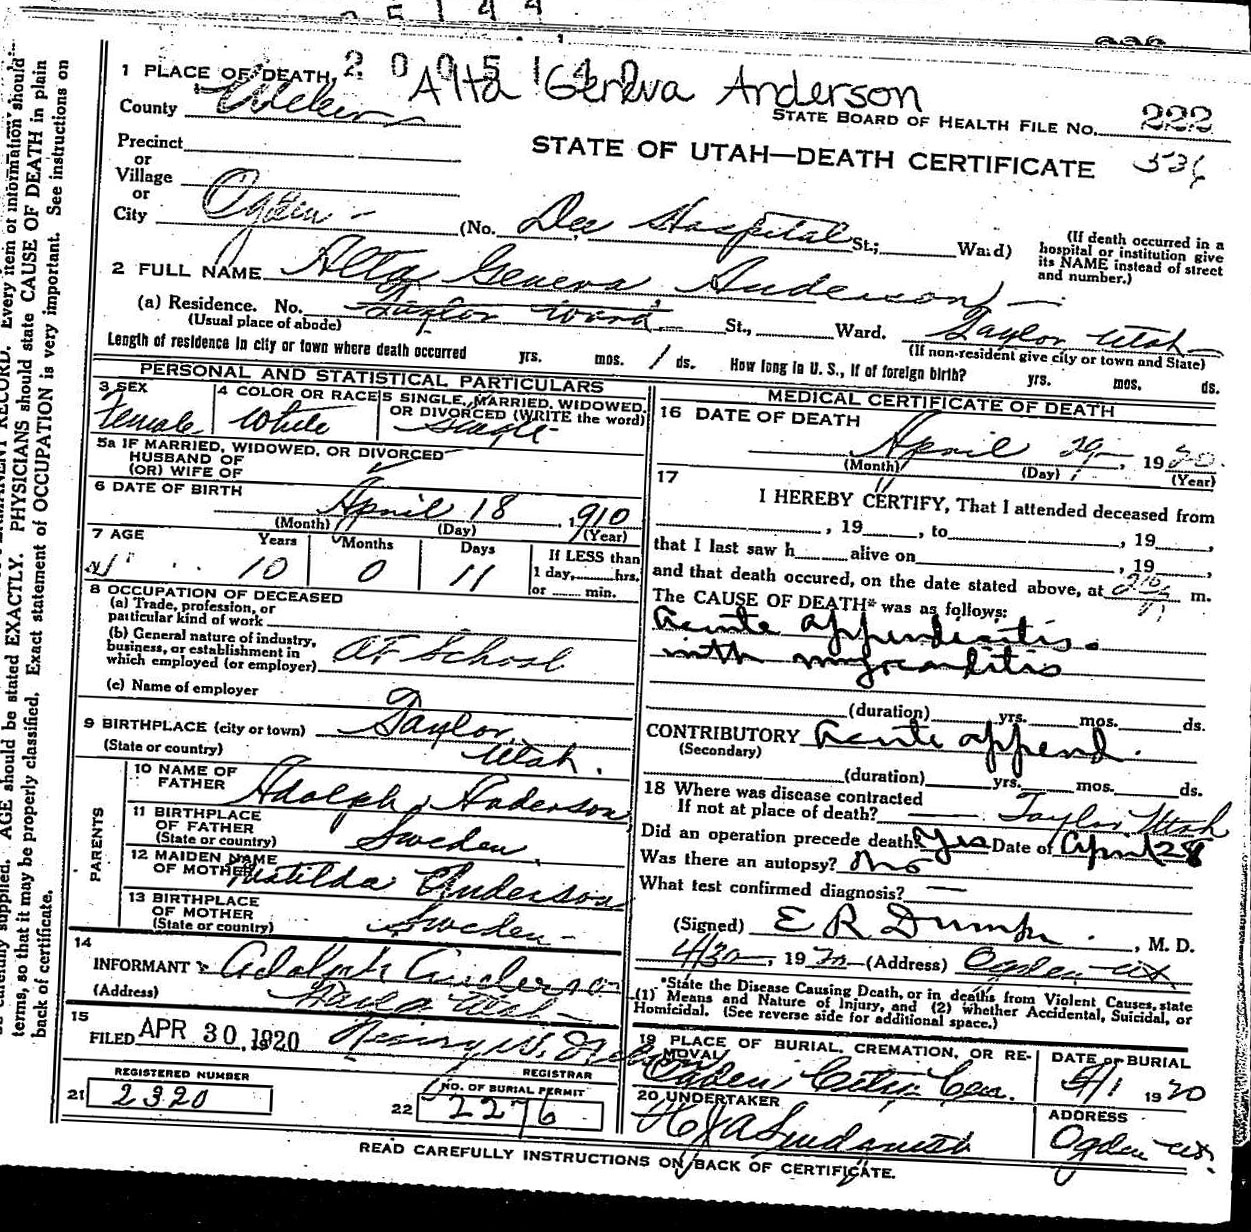 2 0 0 5 1 4 2
Alta Geneva Anderson
1 PLACE OF DEATH,
County Weber
STATE BOARD OF HEALTH FILE NO. 222
536
Precinct
or
Village
or
City Ogden
STATE OF UTAH—DEATH CERTIFICATE
(No. Dee Hospital St.; Ward)
(If death occurred in a
hospital or institution give
its NAME instead of street
and number.)
2 FULL NAME Alta Geneva Anderson
(a) Residence. No. Taylor Ward St., Ward. Taylor Utah
(Usual place of abode)
(If non-resident give city or town and State)
Length of residence in city or town where death occurred yrs. mos. 1 ds. How long in U. S., if of foreign birth? yrs. mos. ds.
PERSONAL AND STATISTICAL PARTICULARS
3 SEX
Female
4 COLOR OR RACE
White
5 SINGLE, MARRIED, WIDOWED,
OR DIVORCED (WRITE the word)
Single
5a IF MARRIED, WIDOWED, OR DIVORCED
HUSBAND OF
(OR) WIFE OF
6 DATE OF BIRTH
April 18, 1910
(Month) (Day) (Year)
7 AGE
Years Months Days
10 0 11
If LESS than
1 day, hrs.
or min.
8 OCCUPATION OF DECEASED
(a) Trade, profession, or
particular kind of work
(b) General nature of industry,
business, or establishment in
which employed (or employer) At School
(c) Name of employer
9 BIRTHPLACE (city or town) Taylor
(State or country) Utah.
PARENTS
10 NAME OF
FATHER Adolph Anderson
11 BIRTHPLACE
OF FATHER
(State or country) Sweden
12 MAIDEN NAME
OF MOTHER Matilda Anderson
13 BIRTHPLACE
OF MOTHER
(State or country) Sweden
14
INFORMANT Adolph Anderson
(Address) Utah
15
FILED APR 30 1920 Henry W. Nelson
REGISTRAR
REGISTERED NUMBER
21 2320
NO. OF BURIAL PERMIT
22 2276
MEDICAL CERTIFICATE OF DEATH
16 DATE OF DEATH
April 29, 1920.
(Month) (Day) (Year)
17
I HEREBY CERTIFY, That I attended deceased from
, 19 , to , 19 ,
that I last saw h alive on , 19 ,
and that death occured, on the date stated above, at m.
The CAUSE OF DEATH* was as follows:
Acute appendicitis.
with myocarditis
(duration) yrs. mos. ds.
CONTRIBUTORY Acute append.
(Secondary)
(duration) yrs. mos. ds.
18 Where was disease contracted
If not at place of death? Taylor Utah
Did an operation precede death? Yes Date of April 28
Was there an autopsy? No
What test confirmed diagnosis? —
(Signed) E R Dumke, M. D.
4/30, 1920 (Address) Ogden Ut
*State the Disease Causing Death, or in deaths from Violent Causes, state
(1) Means and Nature of Injury, and (2) whether Accidental, Suicidal, or
Homicidal. (See reverse side for additional space.)
19 PLACE OF BURIAL, CREMATION, OR RE-
MOVAL
Ogden City Cem.
DATE OF BURIAL
5/1 1920
20 UNDERTAKER
ADDRESS
Ogden Ut.
READ CAREFULLY INSTRUCTIONS ON BACK OF CERTIFICATE.
PERMANENT RECORD. Every item of information should
supplied. AGE should be stated EXACTLY. PHYSICIANS should state CAUSE OF DEATH in plain
terms, so that it may be properly classified. Exact statement of OCCUPATION is very important. See instructions on
back of certificate.